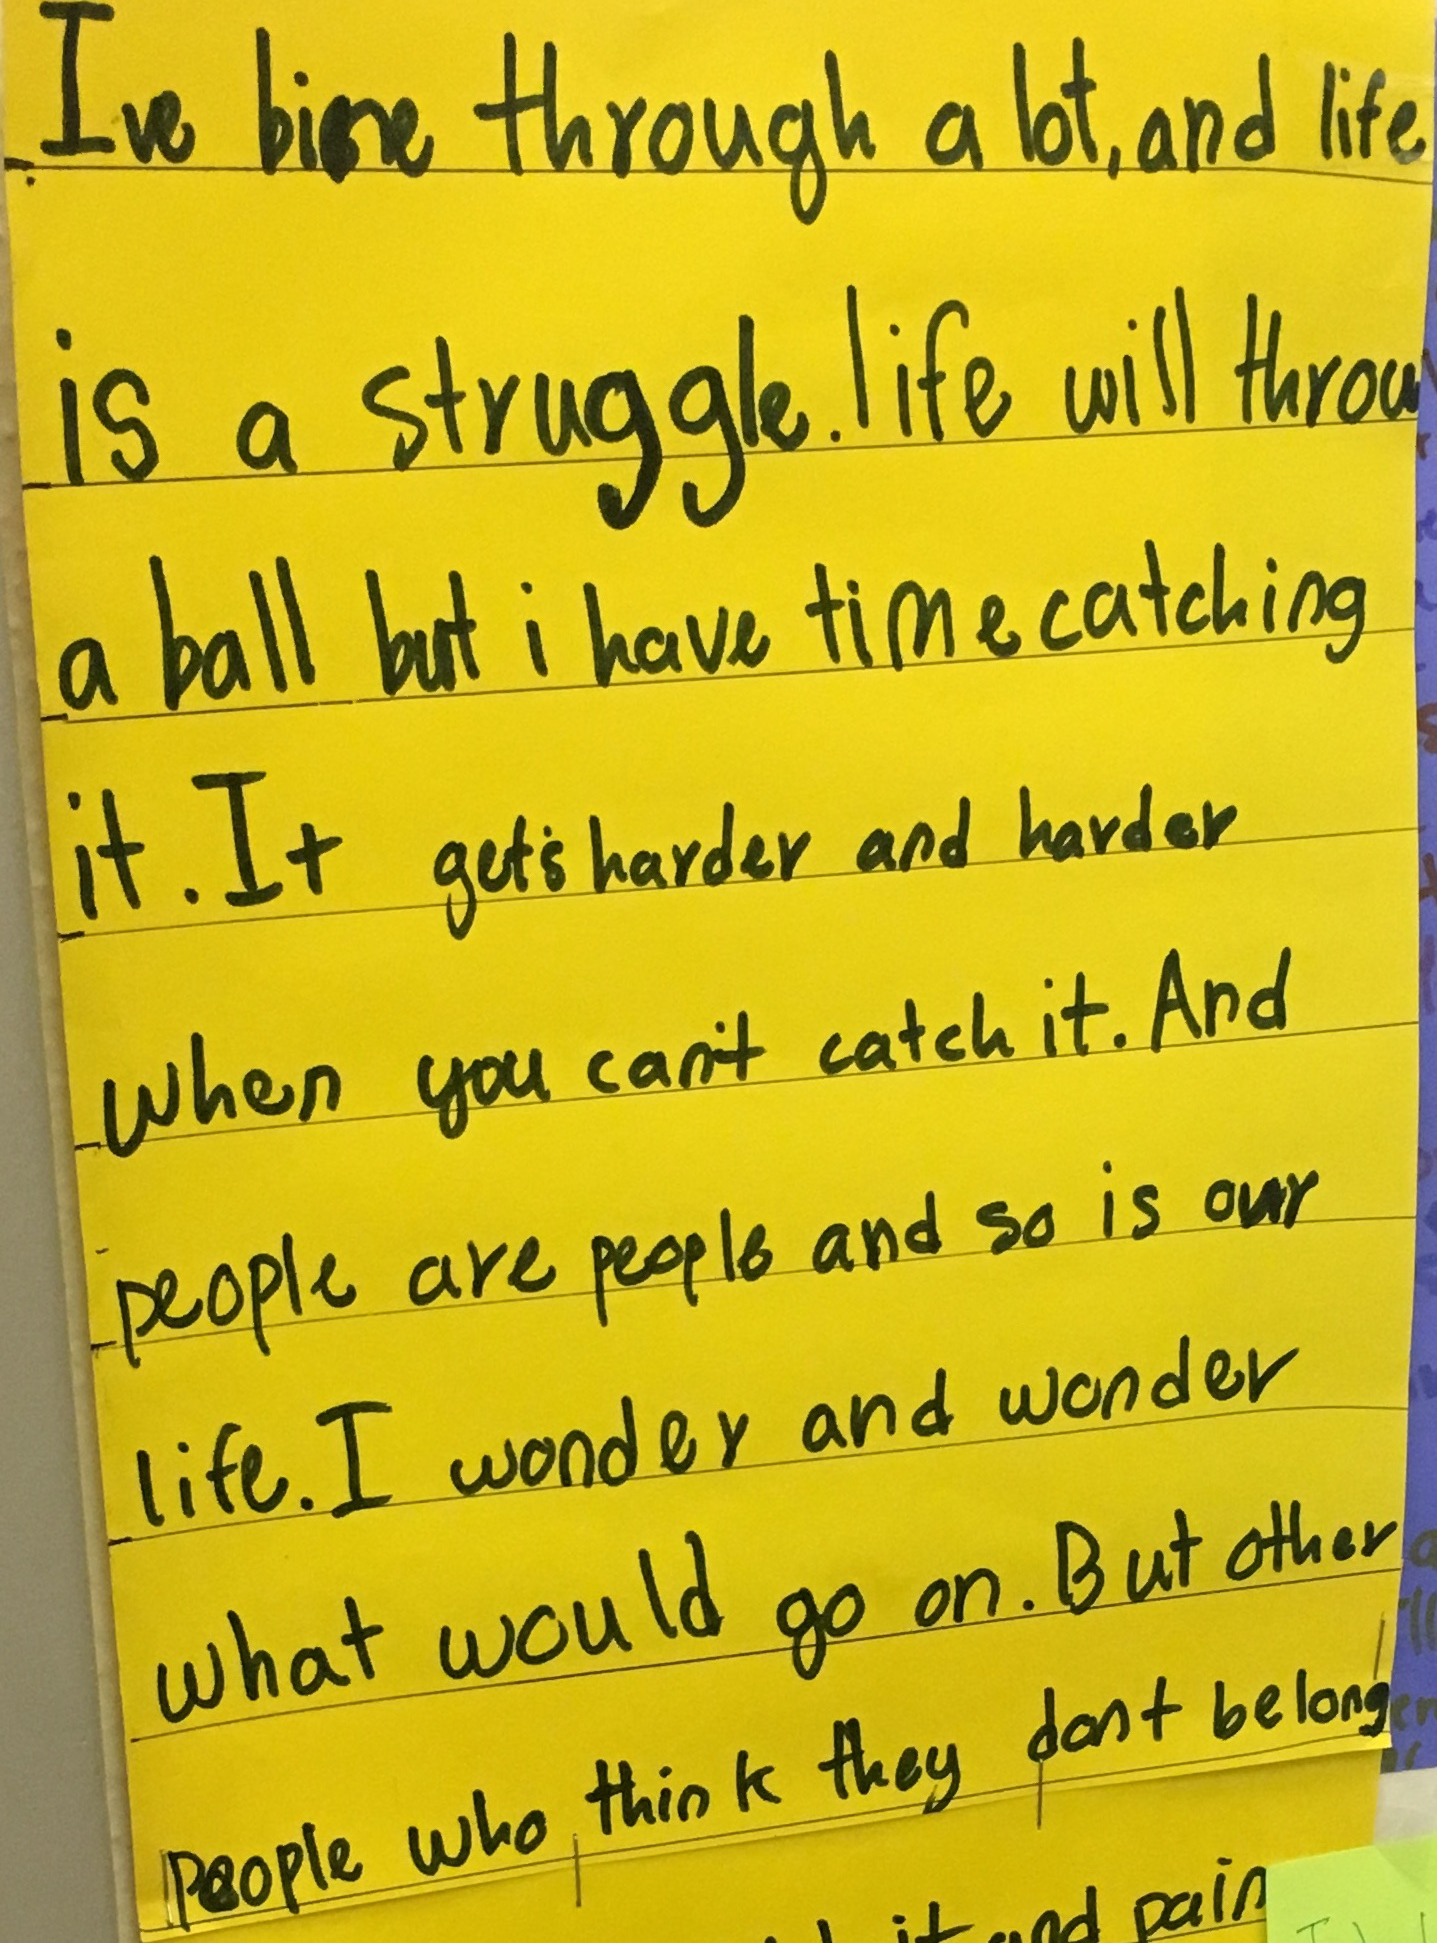 Ive bine through a lot, and life
is a struggle. life will throw
a ball but i have time catching
it. It get's harder and harder
when you can't catch it. And
people are people and so is our
life. I wonder and wonder
what would go on. But other
people who think they don't belong
it and pain